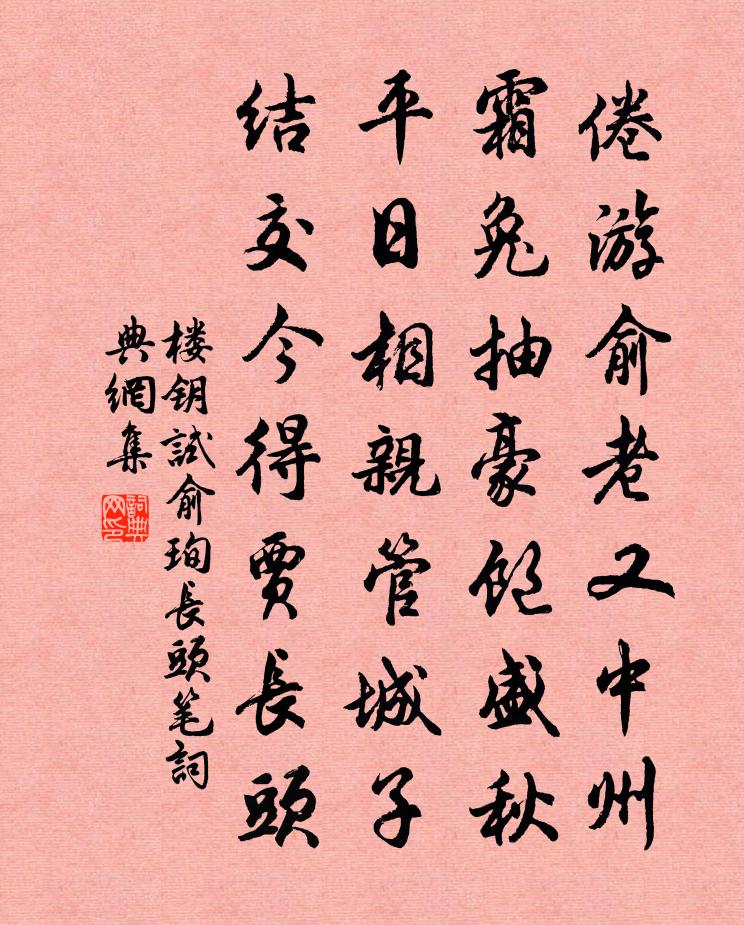 倦游俞老又中州
霜兔抽豪饱盛秋
平日相親管城子
结交今得贾長頭
楼钥試俞珣長頭笔詞
典網集
詞典网印